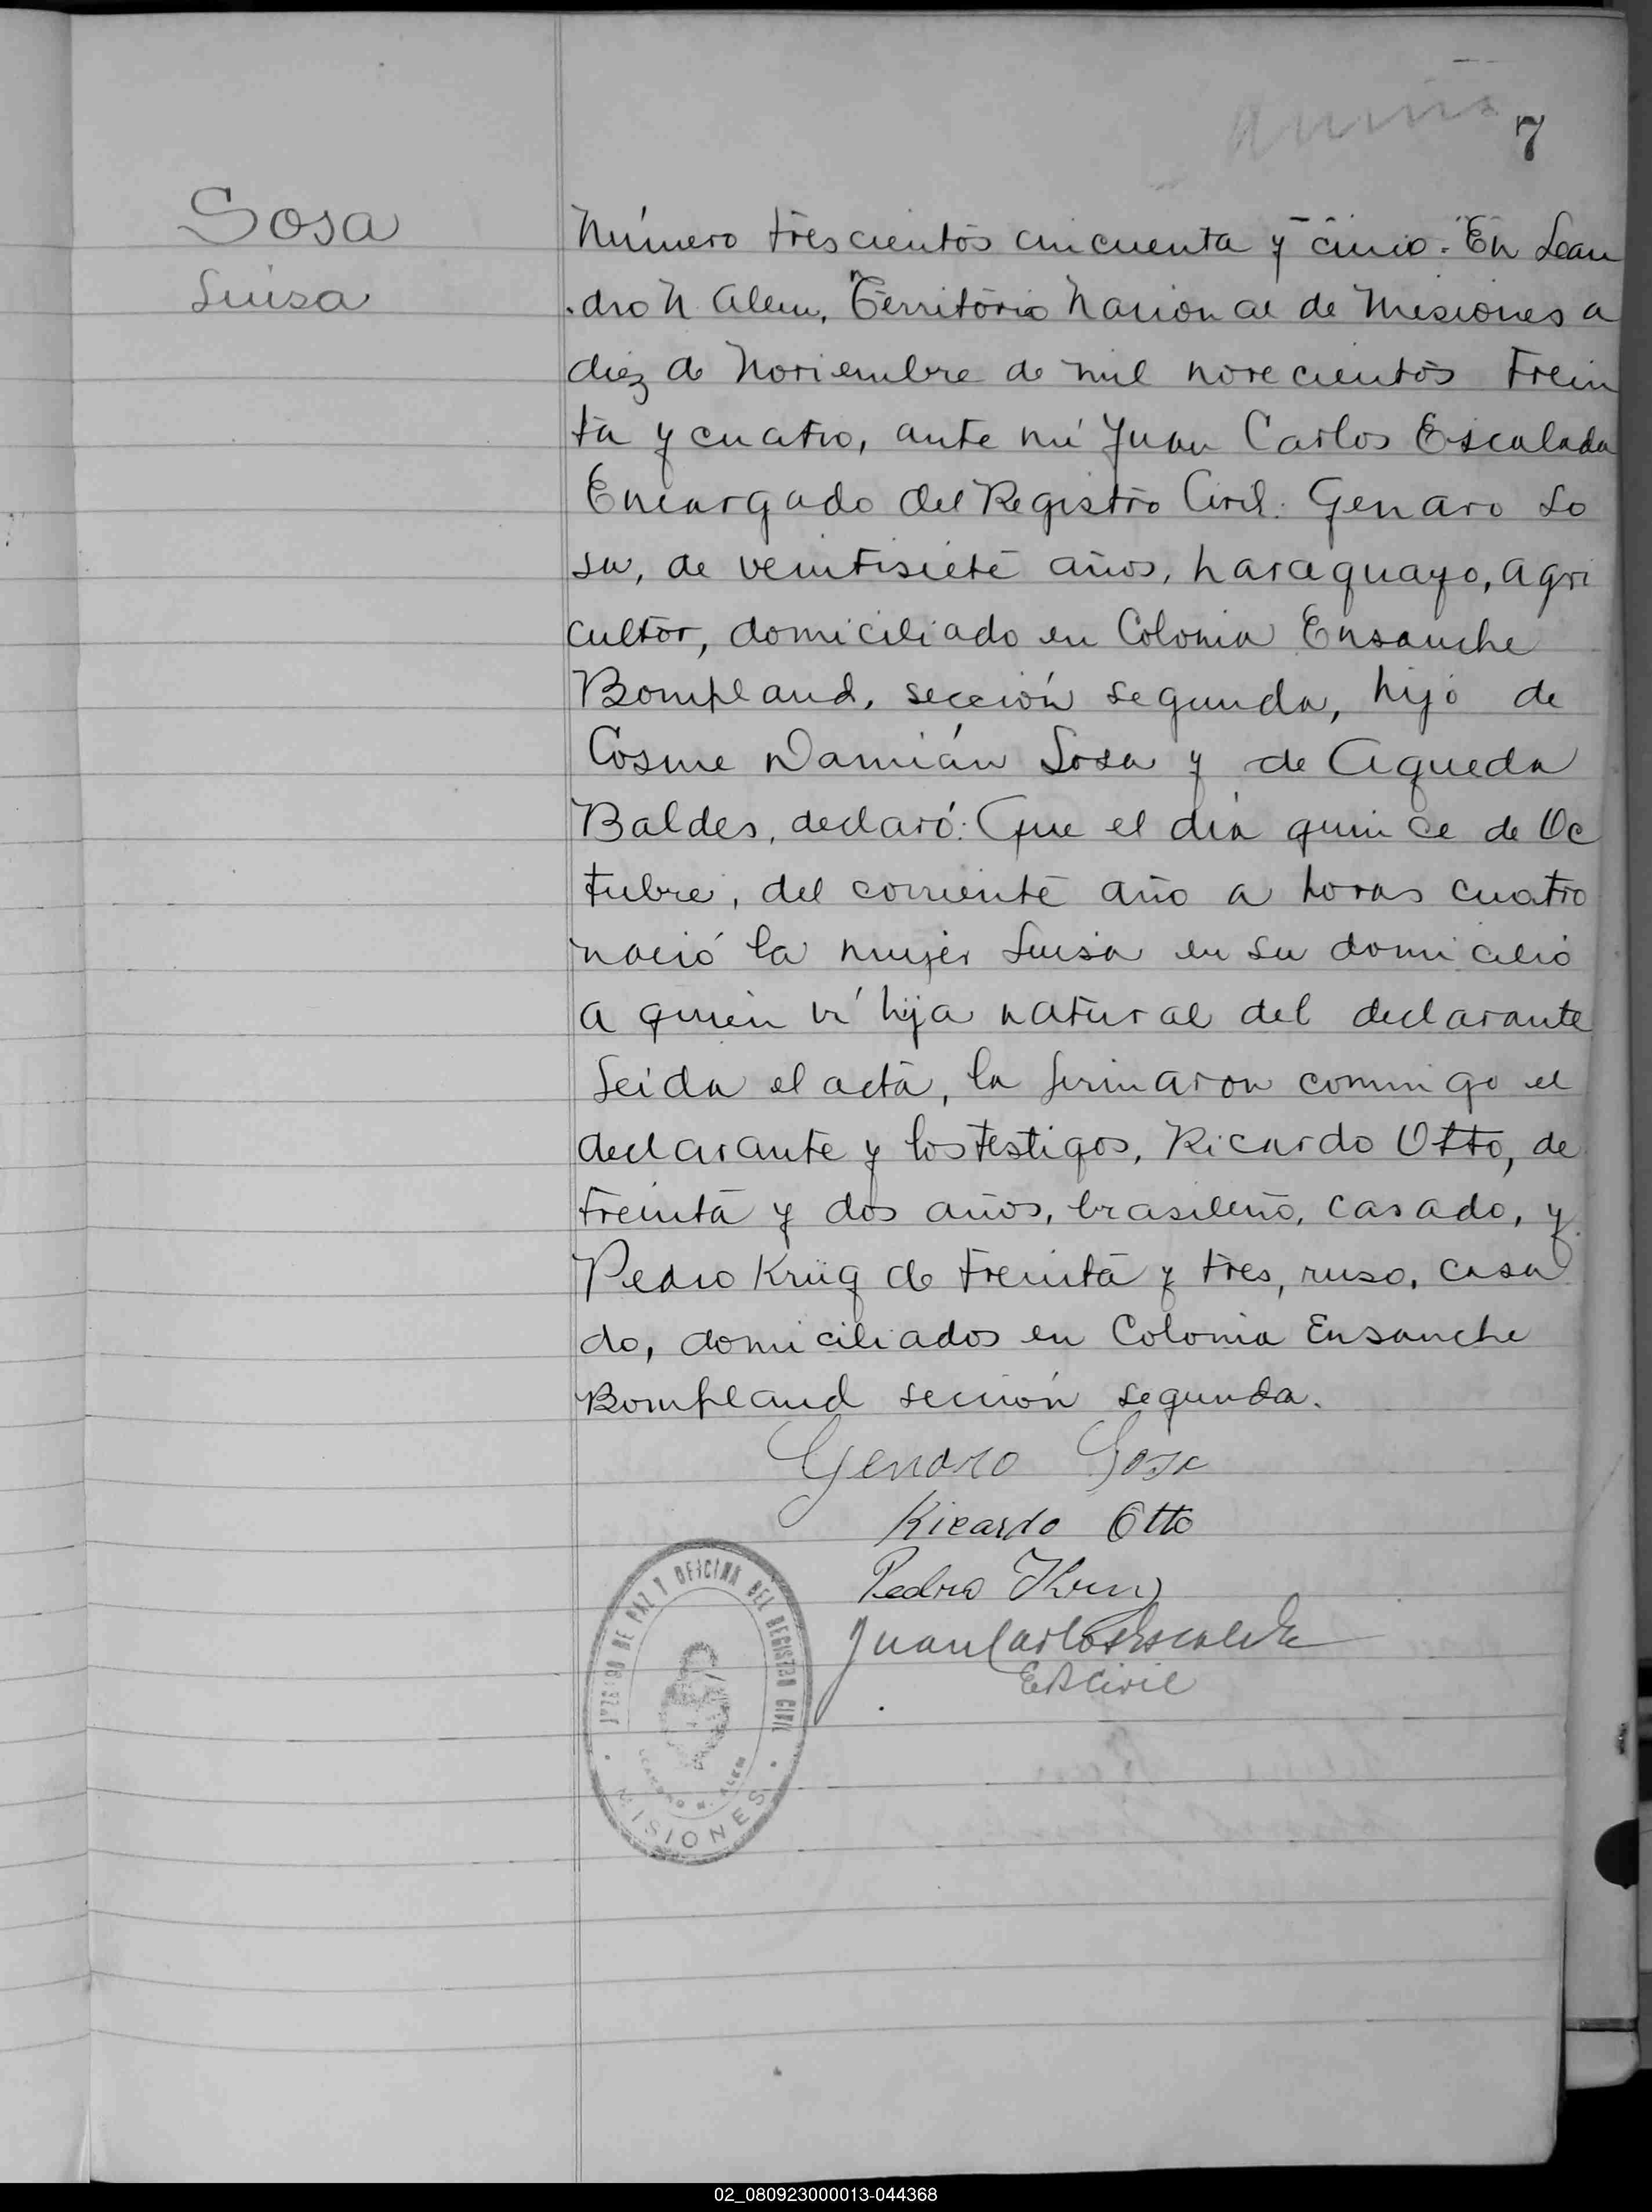 7
Sosa
Luisa
Número trescientos cincuenta y cinco. En Lean
dro N. Alem, Territorio Nacional de Misiones a
diez de Noviembre de mil novecientos trein
ta y cuatro, ante mí Juan Carlos Escalada
Encargado del Registro Civil: Genaro So
sa, de veintisiete años, paraguayo, agri
cultor, domiciliado en Colonia Ensanche
Bompland, sección segunda, hijo de
Cosme Damián Sosa y de Agueda
Baldes, declaró: Que el día quince de Oc
tubre, del corriente año a horas cuatro
nació la mujer Luisa en su domicilio
a quien ví hija natural del declarante
Leida el acta, la firmaron conmigo el
declarante y los testigos, Ricardo Otto, de
treinta y dos años, brasileño, casado, y
Pedro Krüg de treinta y tres, ruso, casa
do, domiciliados en Colonia Ensanche
Bompland sección segunda.
Genaro Sosa
Ricardo Otto
Pedro Krug
Juan Carlos Escalada
E R Civil
JUZGADO DE PAZ Y OFICINA DEL REGISTRO CIVIL
LEANDRO N. ALEM
MISIONES
02_080923000013-044368